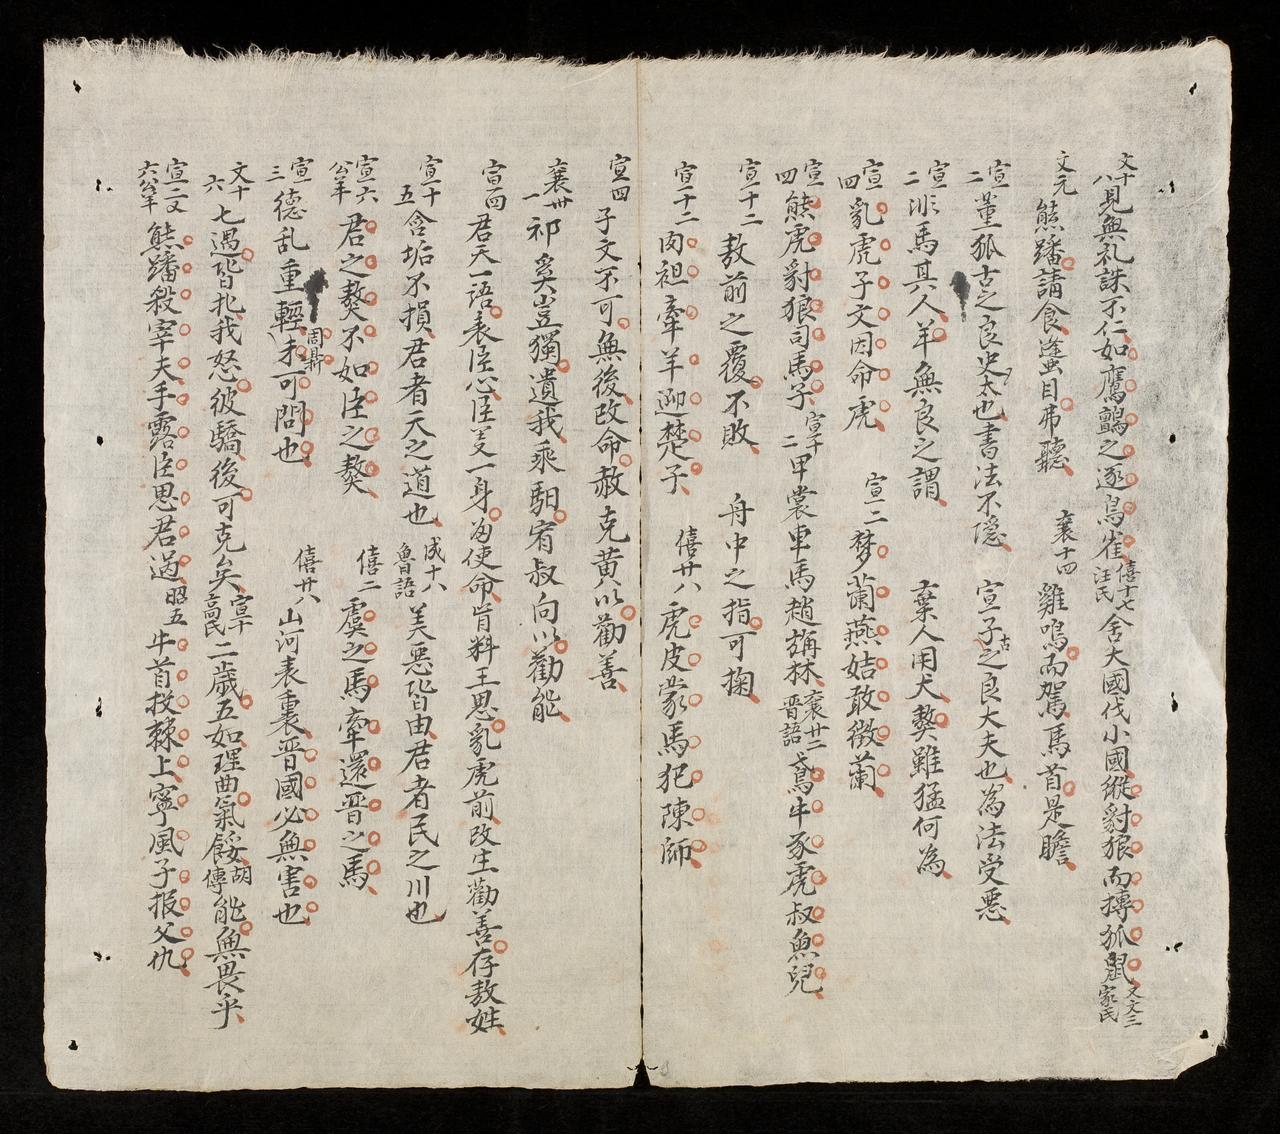 文十八 見無礼誅不仁如鷹鸇之逐鳥雀 僖十七 汪氏 舍大國伐小國縱豺狼而摶狐鼠 又文三 家氏
文元 熊蹯請食蜂目弗聽 襄十四 雞鳴而駕馬首是瞻
宣二 董狐古之良史太也書法不隠 宣子古之良大夫也為法受悪
宣二 非馬其人羊無良之謂 棄人用犬獒雖猛何為
宣四 乱虎子文因命虎 宣二 梦蘭燕姞敢徴蘭
宣四 熊虎豺狼司馬子 宣十二 甲裳車馬趙旃林 襄廿二 晋語 鳶牛豕虎叔魚兒
宣十二 敖前之覆不敗 舟中之指可掬
宣十二 肉袒牽羊迎楚子 僖廿八 虎皮蒙馬犯陳師
宣四 子文不可無後改命赦克黄以勸善
襄廿一 祁奚豈獨遺我乘馹宥叔向以勸能
宣四 君天一語表臣心臣美一身為使命肯料王思乳虎前改生勸善存敖姓
宣十五 含垢不損君者天之道也 成十八 魯語 美悪皆由君者民之川也
宣六 公羊 君之獒不如臣之獒 僖二 虞之馬牽還晋之馬
宣三 德乱重輕未可問也 周鼎 僖廿八 山河表裏晋國必無害也
文十六 七遇皆北我怒彼驕後可克矣 宣十 高氏 二歳五如理曲氣餒 胡傳 能無畏乎
宣二又 六公羊 熊蹯殺宰夫手露臣思君過 昭五 牛首投棘上寧風子报父仇